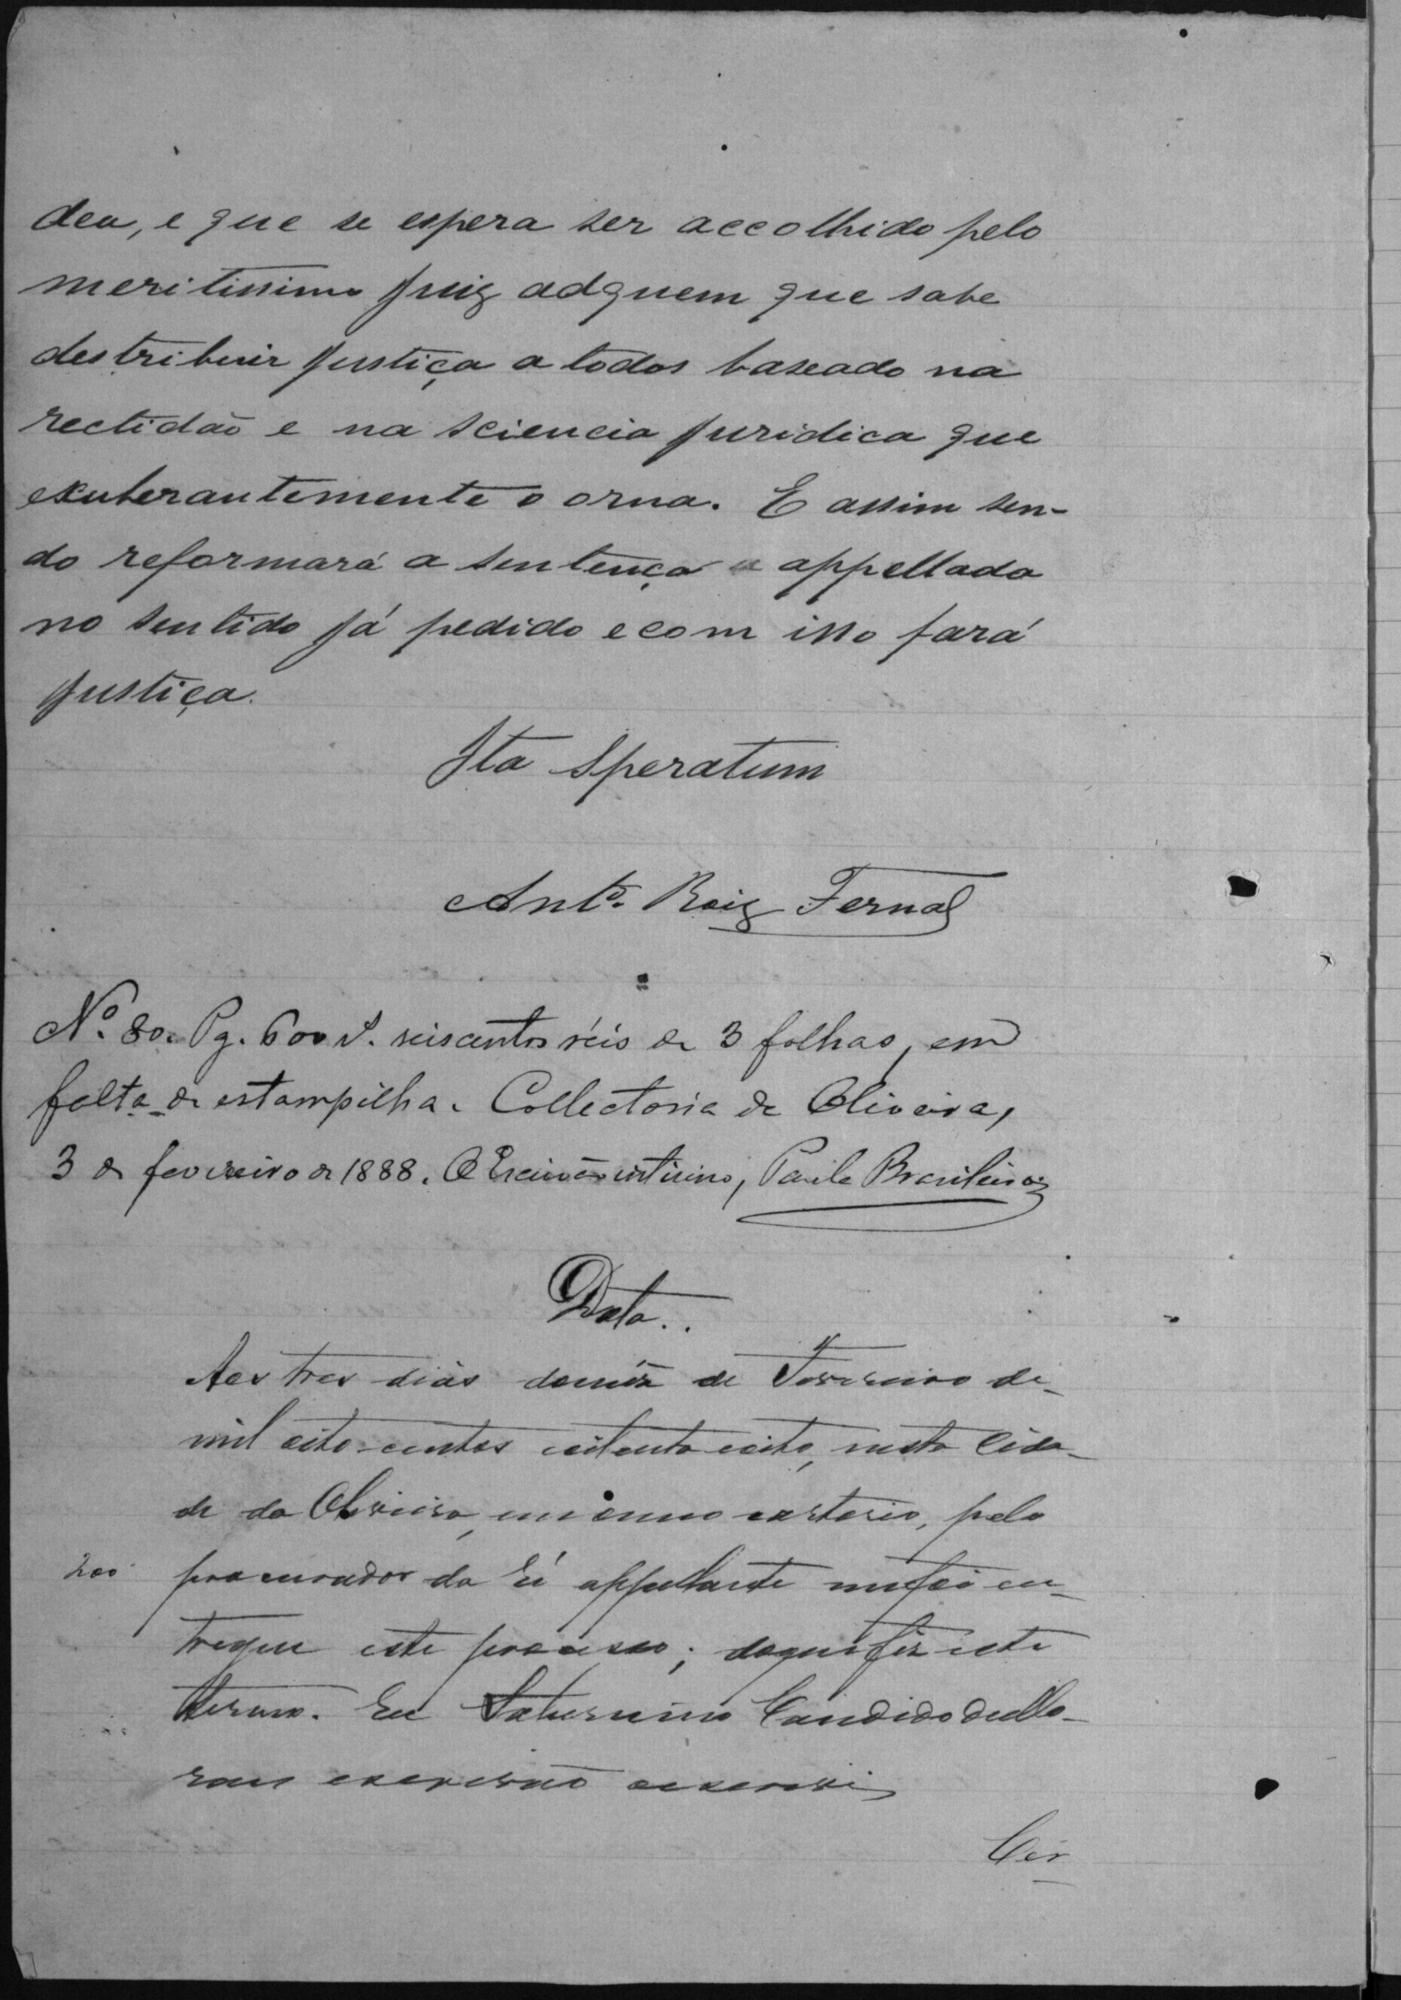 deu, e que se espera ser accolhido pelo
meritissimo juiz adquem que sabe
destribuir justiça a todos baseado na
rectidão e na sciencia juridica que
exuberantemente o orna. E assim sen-
do reformará a sentença appellada
no sentido já pedido e com isso fará
justiça.
Ita Speratum
Antº. Roiz Fernal
Nº. 80. Pg. 600 rs. seiscentos réis de 3 folhas, em
falta de estampilha. Collectoria de Oliveira,
3 de fevereiro de 1888. O Escrivão interino, Paula Brasileiro
Data..
Aos tres dias do mêz de Fevereiro de
mil oito centos oitenta e oito, nesta Cida-
de da Oliveira, em o meu cartorio, pelo
200 procurador da ré appellante me foi en-
tregue este processo; do que fiz este
termo. Eu Saturnino Candido de Mo-
raes escrivão o escrevi